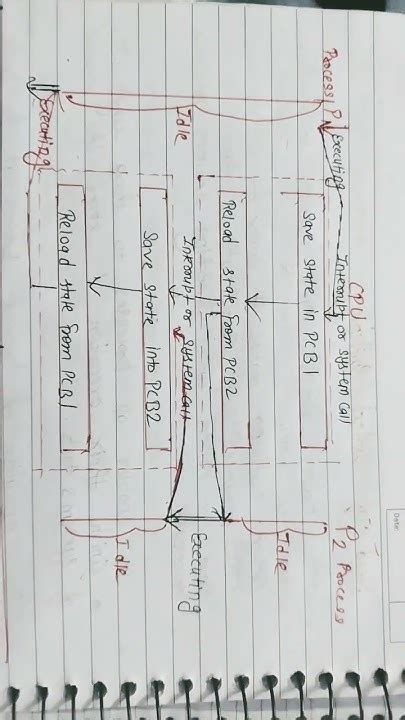 Date:
CPU
Process P1
P2 Process
Executing
Interrupt or system call
Save state in PCB1
Idle
Idle
Reload state from PCB2
Interrupt or system call
Executing
Save state into PCB2
Idle
Reload state from PCB1
Executing